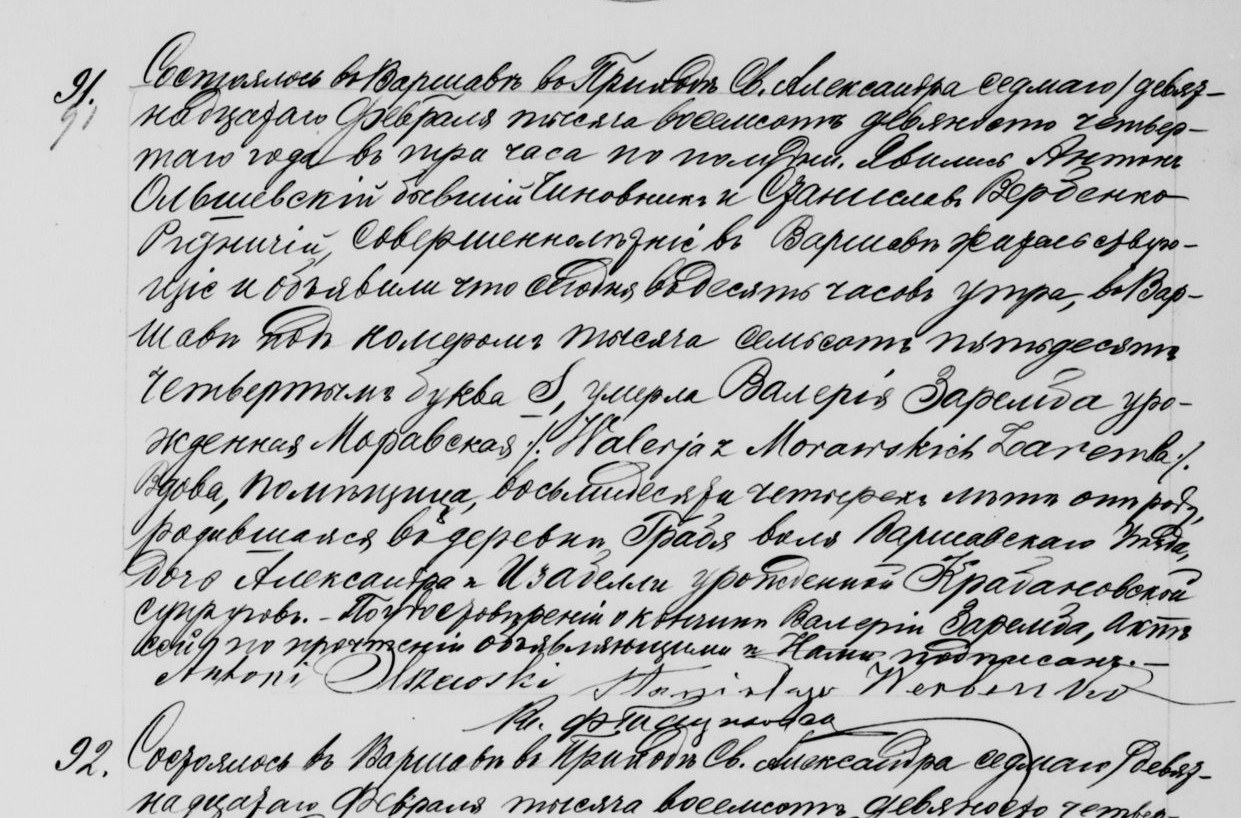 91. Состоялось въ Варшавѣ въ Приходѣ Св. Александра седмаго / девят-
91 надцатаго Февраля тысяча восемьсотъ девяносто четвер-
таго года въ три часа по полудни. Явились Антонъ
Ольшевскій бывшій Чиновникъ и Станиславъ Вербенко
совершеннолѣтніе въ Варшавѣ жительствую-
щіе и объявили что сегодня въ десять часовъ утра, въ Вар-
шавѣ подъ номеромъ тысяча семьсотъ пятьдесятъ
четвертымъ буква S, умерла Валерія Заремба уро-
жденная Моравская /: Walerja z Morawskich Zaremba :/.
Вдова, Помѣщица, восьмидесяти четырехъ лѣтъ отъ роду,
родившаяся въ деревнѣ Грабя воля Варшавскаго Уѣзда,
дочь Александра и Изабелли урожденной Храбановской
супруговъ. - По удостовѣреніи о кончинѣ Валеріи Заремба, Актъ
сей по прочтеніи объявляющими и Нами подписанъ. -
Antoni Olszewski Stanisław Werbenko
Кс.
92. Состоялось въ Варшавѣ въ Приходѣ Св. Александра седмаго / девят-
надцатаго Февраля тысяча восемьсотъ девяносто четвер-